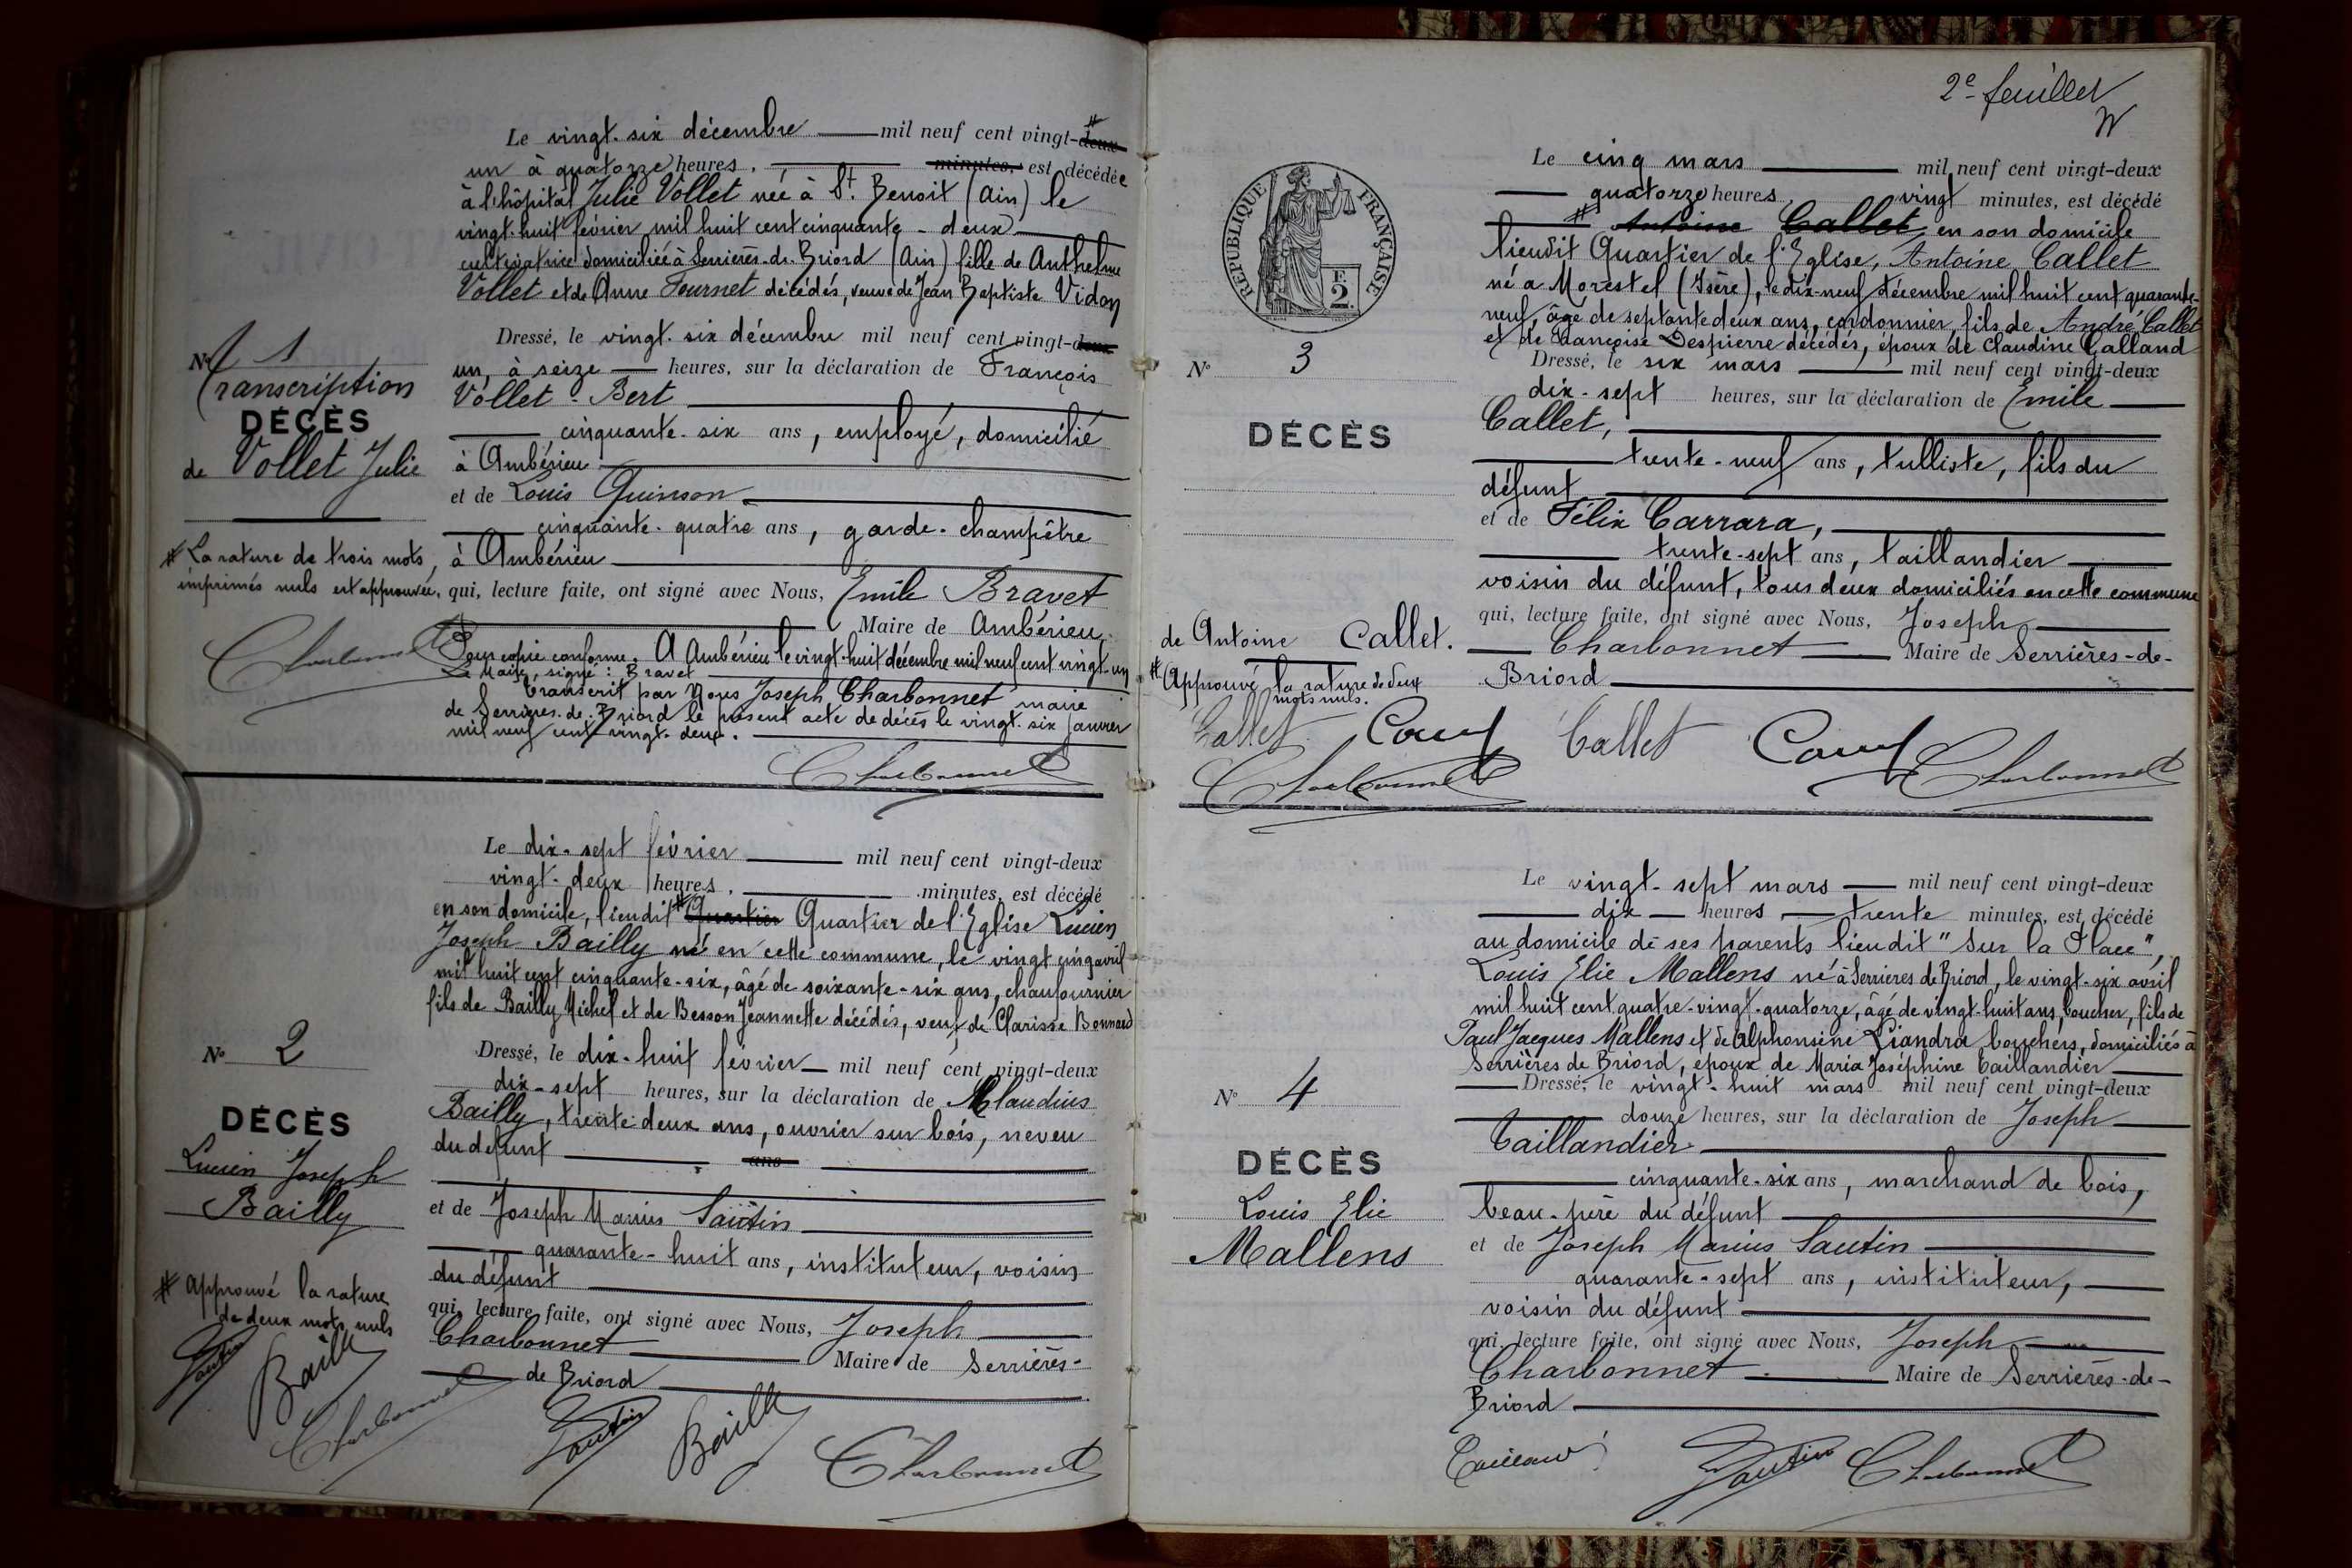 Le vingt-six décembre mil neuf cent vingt-deux #
un à quatorze heures, minutes, est décédée
à l'hôpital Julie Vollet née à St. Benoit (Ain) le
vingt-huit février mil huit cent cinquante-deux
cultivatrice domiciliée à Serrières-de-Briord (Ain) fille de Anthelme
Vollet et de Anne Fournet décédés, veuve de Jean Baptiste Vidon
Dressé, le vingt-six décembre mil neuf cent vingt-deux
un, à seize heures, sur la déclaration de François
Vollet-Bert
cinquante-six ans, employé, domicilié
à Ambérieu
et de Louis Quinson
cinquante-quatre ans, garde-champêtre
à Ambérieu
qui, lecture faite, ont signé avec Nous, Emile Bravet
Maire de Ambérieu.
Pour copie conforme. A Ambérieu le vingt-huit décembre mil neuf cent vingt-un
Le Maire, signé : Bravet
Transcrit par Nous Joseph Charbonnet maire
de Serrières-de-Briord le présent acte de décès le vingt-six janvier
mil neuf cent vingt-deux.
Charbonnet
No 1
Transcription
DÉCÈS
de Vollet Julie
# La rature de trois mots
imprimés nuls est approuvée.
Charbonnet
Le dix-sept février mil neuf cent vingt-deux
vingt-deux heures, minutes, est décédé
en son domicile, lieudit # Quartier Quartier de l'Eglise Lucien
Joseph Bailly né en cette commune, le vingt cinq avril
mil huit cent cinquante-six, âgé de soixante-six ans, chaufournier
fils de Bailly Michel et de Besson Jeannette décédés, veuf de Clarisse Bonnard
Dressé, le dix-huit février mil neuf cent vingt-deux
dix-sept heures, sur la déclaration de Claudius
Bailly, trente deux ans, ouvrier sur bois, neveu
du défunt ans
et de Joseph Marius Sautin
quarante-huit ans, instituteur, voisin
du défunt
qui, lecture faite, ont signé avec Nous, Joseph
Charbonnet Maire de Serrières-
de Briord
Sautin Bailly Charbonnet
No 2
DÉCÈS
Lucien Joseph
Bailly
# approuvé la rature
de deux mots nuls
Sautin Bailly
Charbonnet
2e feuillet
RÉPUBLIQUE FRANÇAISE
F.
2.
Le cinq mars mil neuf cent vingt-deux
quatorze heures, vingt minutes, est décédé
# Antoine Callet en son domicile
lieudit Quartier de l'Eglise, Antoine Callet
né à Morestel (Isère), le dix-neuf décembre mil huit cent quarante-
neuf, âgé de septante deux ans, cordonnier, fils de André Callet
et de Françoise Despierre décédés, époux de Claudine Galland
Dressé, le six mars mil neuf cent vingt-deux
dix-sept heures, sur la déclaration de Emile
Callet,
trente-neuf ans, tulliste, fils du
défunt
et de Félix Carrara,
trente-sept ans, taillandier
voisin du défunt, tous deux domiciliés en cette commune
qui, lecture faite, ont signé avec Nous, Joseph
Charbonnet Maire de Serrières-de-
Briord
No 3
DÉCÈS
de Antoine Callet.
# Approuvé la rature de deux
mots nuls.
Callet Callet
Charbonnet Charbonnet
Le vingt-sept mars mil neuf cent vingt-deux
dix heures trente minutes, est décédé
au domicile de ses parents lieudit "Sur la Place",
Louis Elie Mallens né à Serrières de Briord, le vingt-six avril
mil huit cent quatre-vingt-quatorze, âgé de vingt-huit ans, boucher, fils de
Paul Jacques Mallens et de Alphonsine Liandra bouchers, domiciliés à
Serrières de Briord, époux de Maria Joséphine Taillandier
Dressé, le vingt-huit mars mil neuf cent vingt-deux
douze heures, sur la déclaration de Joseph
Taillandier
cinquante-six ans, marchand de bois,
beau-père du défunt
et de Joseph Marius Sautin
quarante-sept ans, instituteur,
voisin du défunt
qui, lecture faite, ont signé avec Nous, Joseph
Charbonnet Maire de Serrières-de-
Briord
Sautin Charbonnet
No 4
DÉCÈS
Louis Elie
Mallens